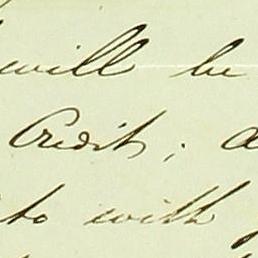 will be
Credit; a
to with